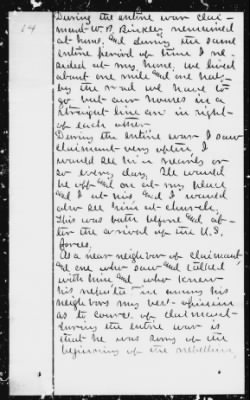 14
During the entire war clai-
mant W. B. Binkley remained
at home, and during the same
entire period of time I re-
sided at my home, we lived
about one mile and one half
by the road we have to
go but our houses in a
straight line are in sight
of each other.
During the entire war I saw
claimant very often I
would see him weekly or
so every day, He would
be off and on at my place
and I at his and I would
also see him at church,
This was both before and af-
ter the arrival of the U.S.
forces,
As a near neighbor of claimant
and one who saw and talked
with him and who knew
his reputation among his
neighbors my best opinion
as to course of claimant
during the entire war is
that he was sorry of the
beginning of the rebellion,